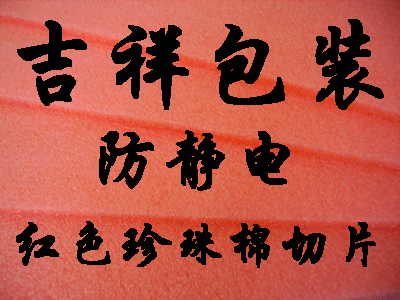 吉祥包装
防静电
红色珍珠棉切片